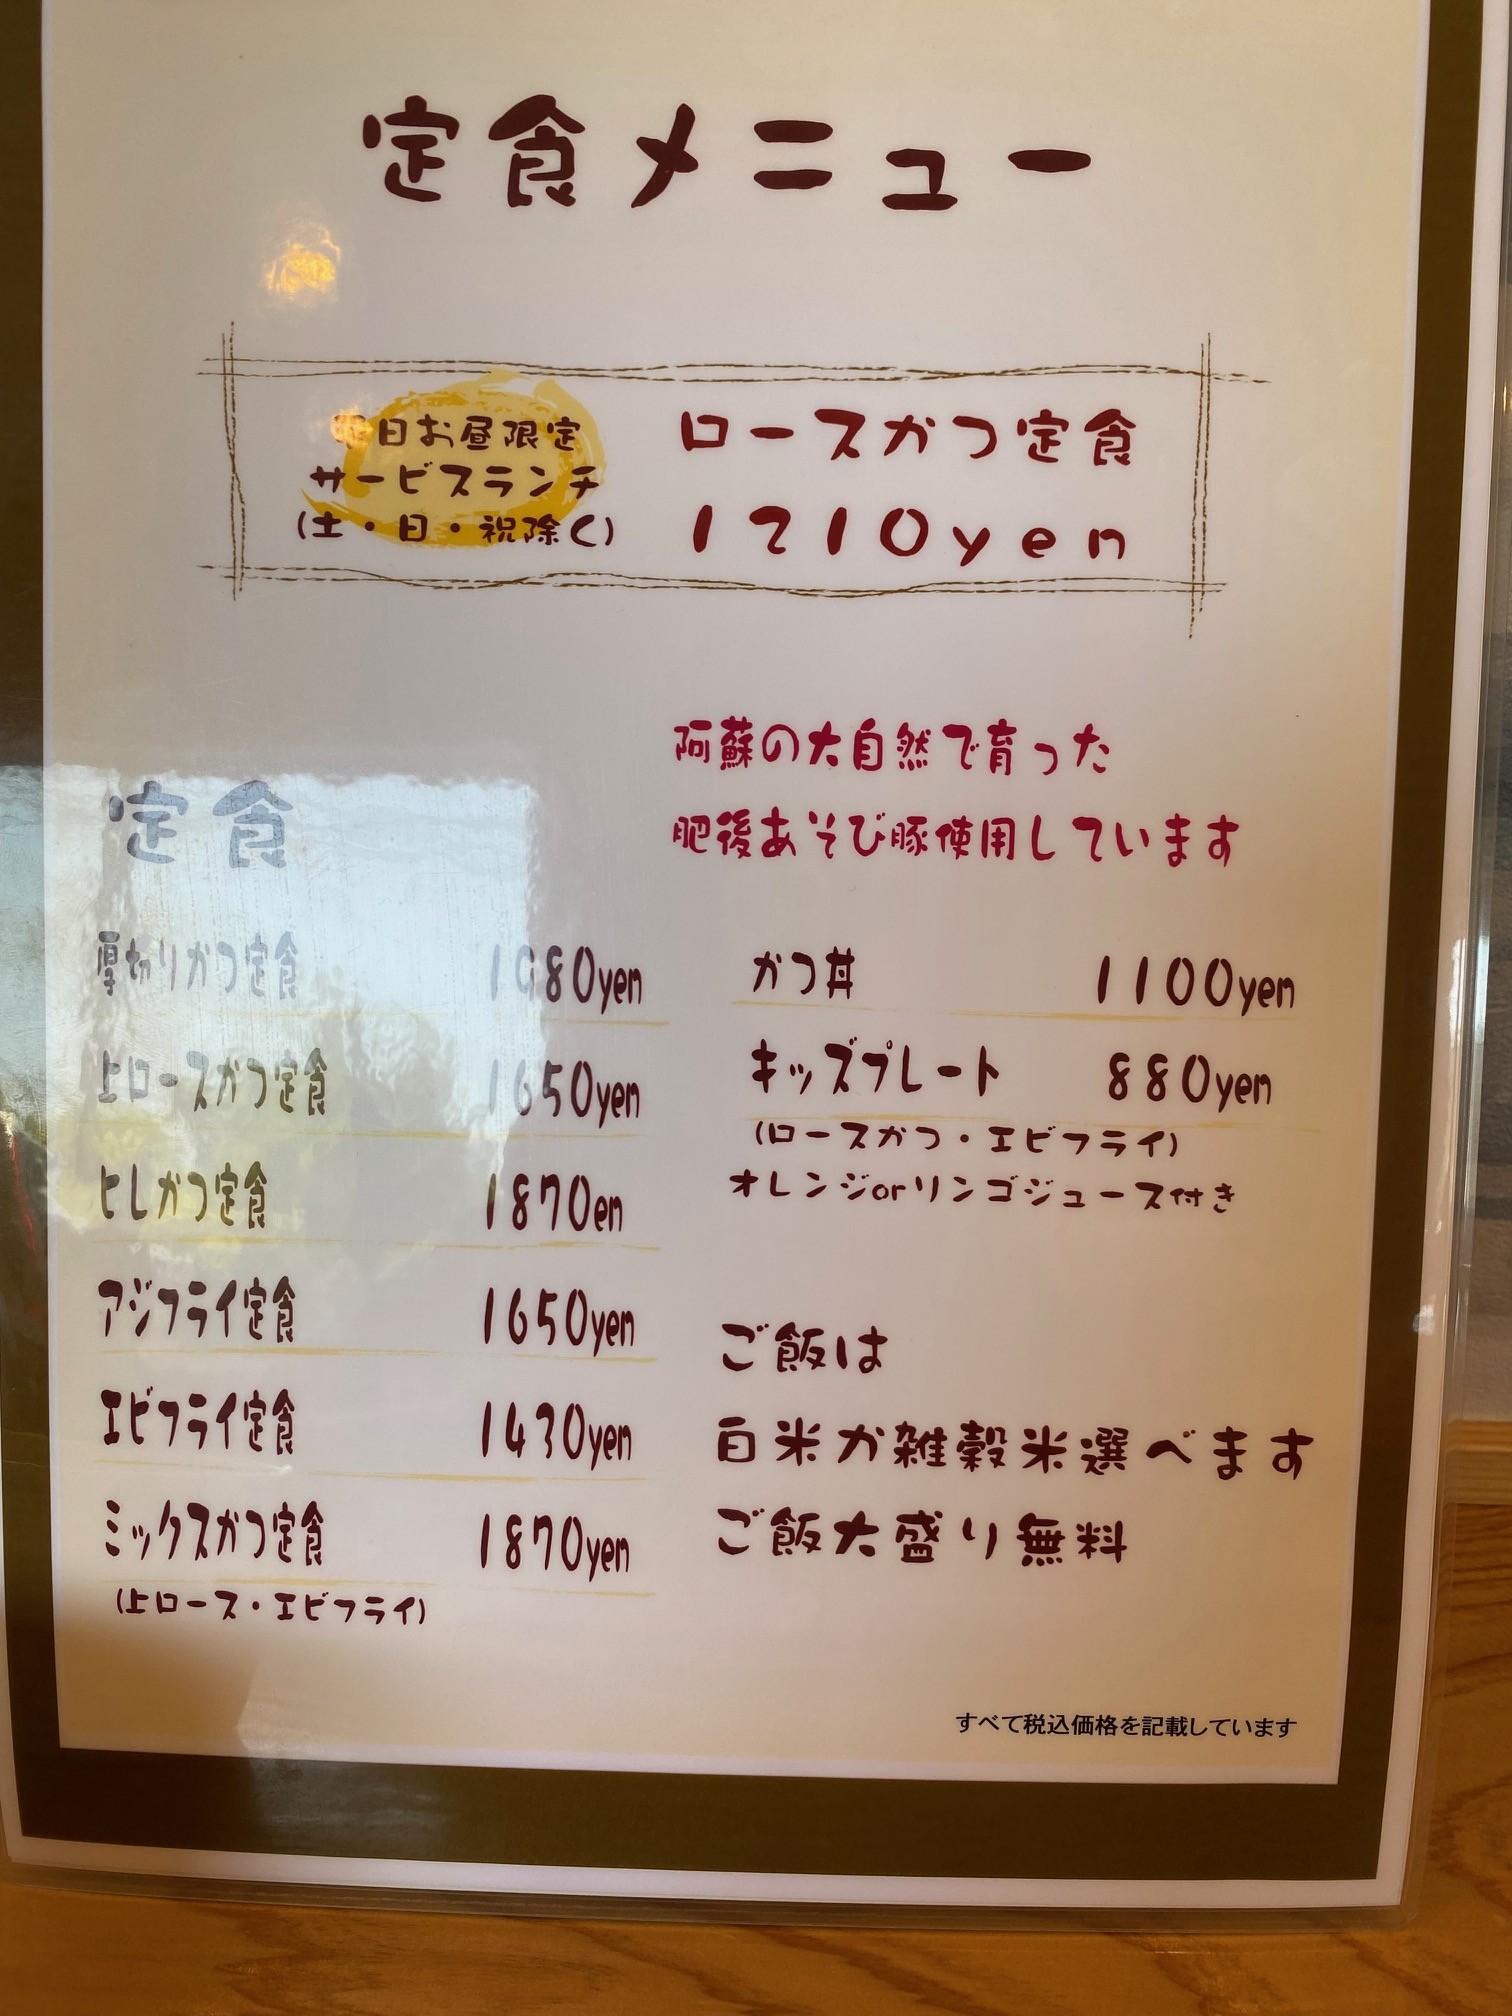 定食メニュー
平日お昼限定
サービスランチ
(土・日・祝除く)
ロースかつ定食
1210yen
阿蘇の大自然で育った
肥後あそび豚使用しています
定食
厚切りかつ定食 1980yen
上ロースかつ定食 1650yen
ヒレかつ定食 1870en
アジフライ定食 1650yen
エビフライ定食 1430yen
ミックスかつ定食 1870yen
(上ロース・エビフライ)
かつ丼 1100yen
キッズプレート 880yen
(ロースかつ・エビフライ)
オレンジorリンゴジュース付き
ご飯は
白米か雑穀米選べます
ご飯大盛り無料
すべて税込価格を記載しています